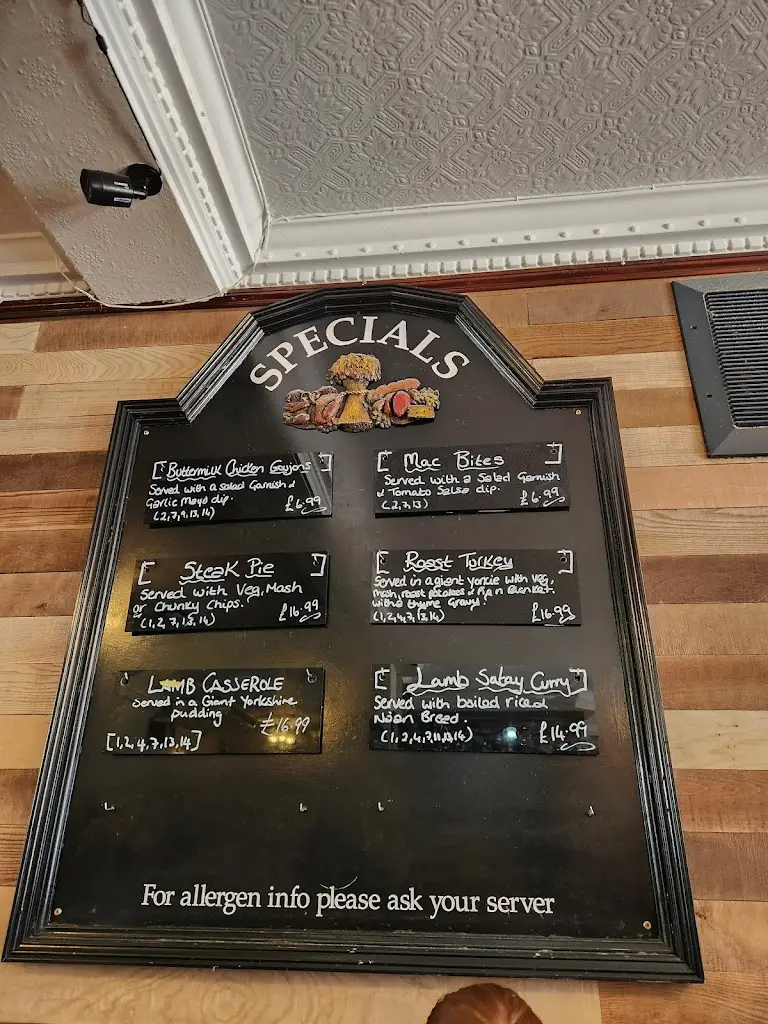 SPECIALS
[Buttermilk Chicken Goujons]
Served with a salad Garnish &
Garlic Mayo dip.
(2,7,9,13,14)
£6.99
[Mac Bites]
Served with a Salad Garnish
& Tomato Salsa dip.
(2,7,13)
£6.99
[Steak Pie]
Served with Veg, Mash
or Chunky Chips.
(1,2,7,13,14)
£16.99
[Roast Turkey]
Served in a giant yorkie with veg,
mash, roast potatoes &
with a thyme Gravy!
£16.99
LAMB CASSEROLE
Served in a Giant Yorkshire
pudding
£16.99
[1,2,4,7,13,14]
[Lamb Satay Curry]
Served with boiled rice &
Naan Bread.
£14.99
For allergen info please ask your server